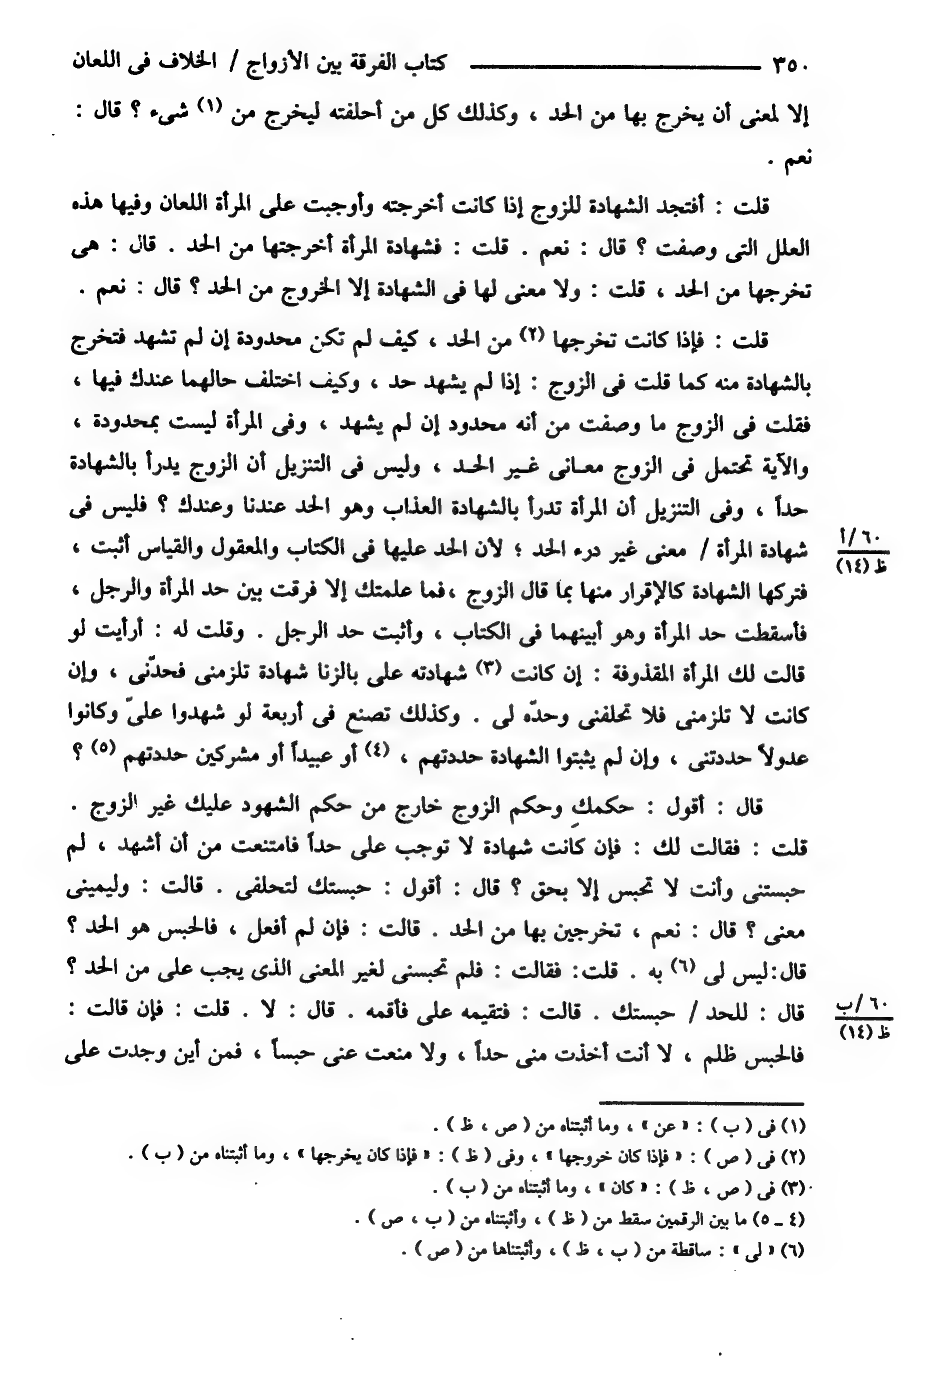 ٣٥٠ كتاب الفرقة بين الأزواج / الخلاف فى اللعان
إلا لمعنى أن يخرج بها من الحد ، وكذلك كل من أحلفته ليخرج من (١) شىء ؟ قال :
نعم .
قلت : أفتجد الشهادة للزوج إذا كانت أخرجته وأوجبت على المرأة اللعان وفيها هذه
العلل التى وصفت ؟ قال : نعم . قلت : فشهادة المرأة أخرجتها من الحد . قال : هى
تخرجها من الحد ، قلت : ولا معنى لها فى الشهادة إلا الخروج من الحد ؟ قال : نعم .
قلت : فإذا كانت تخرجها (٢) من الحد ، كيف لم تكن محدودة إن لم تشهد فتخرج
بالشهادة منه كما قلت فى الزوج : إذا لم يشهد حد ، وكيف اختلف حالهما عندك فيها ،
فقلت فى الزوج ما وصفت من أنه محدود إن لم يشهد ، وفى المرأة ليست بمحدودة ،
والآية تحتمل فى الزوج معانى غير الحد ، وليس فى التنزيل أن الزوج يدرأ بالشهادة
حداً ، وفى التنزيل أن المرأة تدرأ بالشهادة العذاب وهو الحد عندنا وعندك ؟ فليس فى
شهادة المرأة / معنى غير درء الحد ؛ لأن الحد عليها فى الكتاب والمعقول والقياس أثبت ،
٦٠/أ
ظ (١٤)
فتركها الشهادة كالإقرار منها بما قال الزوج ،فما علمتك إلا فرقت بين حد المرأة والرجل ،
فأسقطت حد المرأة وهو أبينهما فى الكتاب ، وأثبت حد الرجل . وقلت له : أرأيت لو
قالت لك المرأة المقذوفة : إن كانت (٣) شهادته على بالزنا شهادة تلزمنى فحدّنى ، وإن
كانت لا تلزمنى فلا تحلفنى وحدّه لى . وكذلك تصنع فى أربعة لو شهدوا علىّ وكانوا
عدولاً حددتنى ، وإن لم يثبتوا الشهادة حددتهم ، (٤) أو عبيداً أو مشركين حددتهم (٥) ؟
قال : أقول : حكمكِ وحكم الزوج خارج من حكم الشهود عليك غير الزوج .
قلت : فقالت لك : فإن كانت شهادة لا توجب على حداً فامتنعت من أن أشهد ، لم
حبستنى وأنت لا تحبس إلا بحق ؟ قال : أقول : حبستك لتحلفى . قالت : وليمينى
معنى ؟ قال : نعم ، تخرجين بها من الحد . قالت : فإن لم أفعل ، فالحبس هو الحد ؟
قال:ليس لى (٦) به . قلت: فقالت : فلم تحبسنى لغير المعنى الذى يجب على من الحد ؟
قال : للحد / حبستك . قالت : فتقيمه على فأقمه . قال : لا . قلت : فإن قالت :
٦٠/ب
ظ (١٤)
فالحبس ظلم ، لا أنت أخذت منى حداً ، ولا منعت عنى حبساً ، فمن أين وجدت على
(١) فى ( ب ) : « عن » ، وما أثبتناه من ( ص ، ظ ) .
(٢) فى ( ص ) : « فإذا كان خروجها » ، وفى ( ظ ) : « فإذا كان يخرجها » ، وما أثبتناه من ( ب ) .
(٣) فى ( ص ، ظ ) : « كان » ، وما أثبتناه من ( ب ) .
(٤ ـ ٥) ما بين الرقمين سقط من ( ظ ) ، وأثبتناه من ( ب ، ص ) .
(٦) « لى » : ساقطة من ( ب ، ظ ) ، وأثبتناها من ( ص ) .